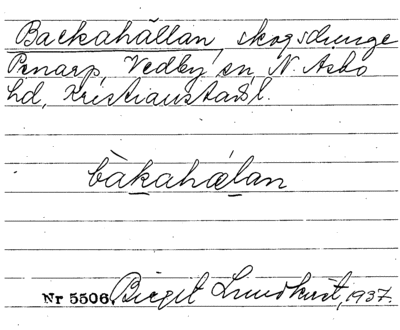 Backahällan, skogsdunge
Penarp, Vedby sn, N. Åsbo
hd, Kristianstads l.
bàkahælan
Nr 5506, Birgit Lundkvist, 1937.